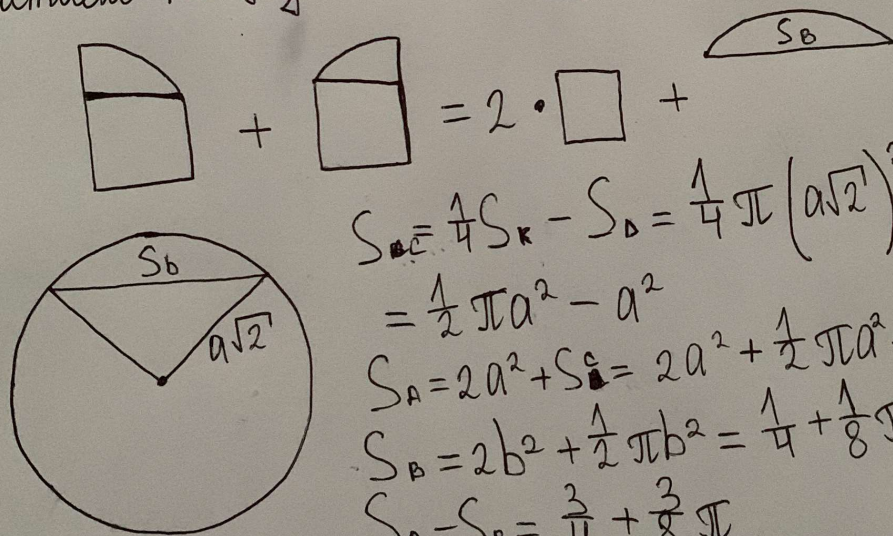 + = 2 · +
S_B
S_C = 1/4 S_K - S_D = 1/4 π (a√2)
= 1/2 πa² - a²
S_b
a√2
S_A = 2a² + S_C = 2a² + 1/2 πa²
S_B = 2b² + 1/2 πb² = 1/4 + 1/8 π
= 3/4 + 3/8 π